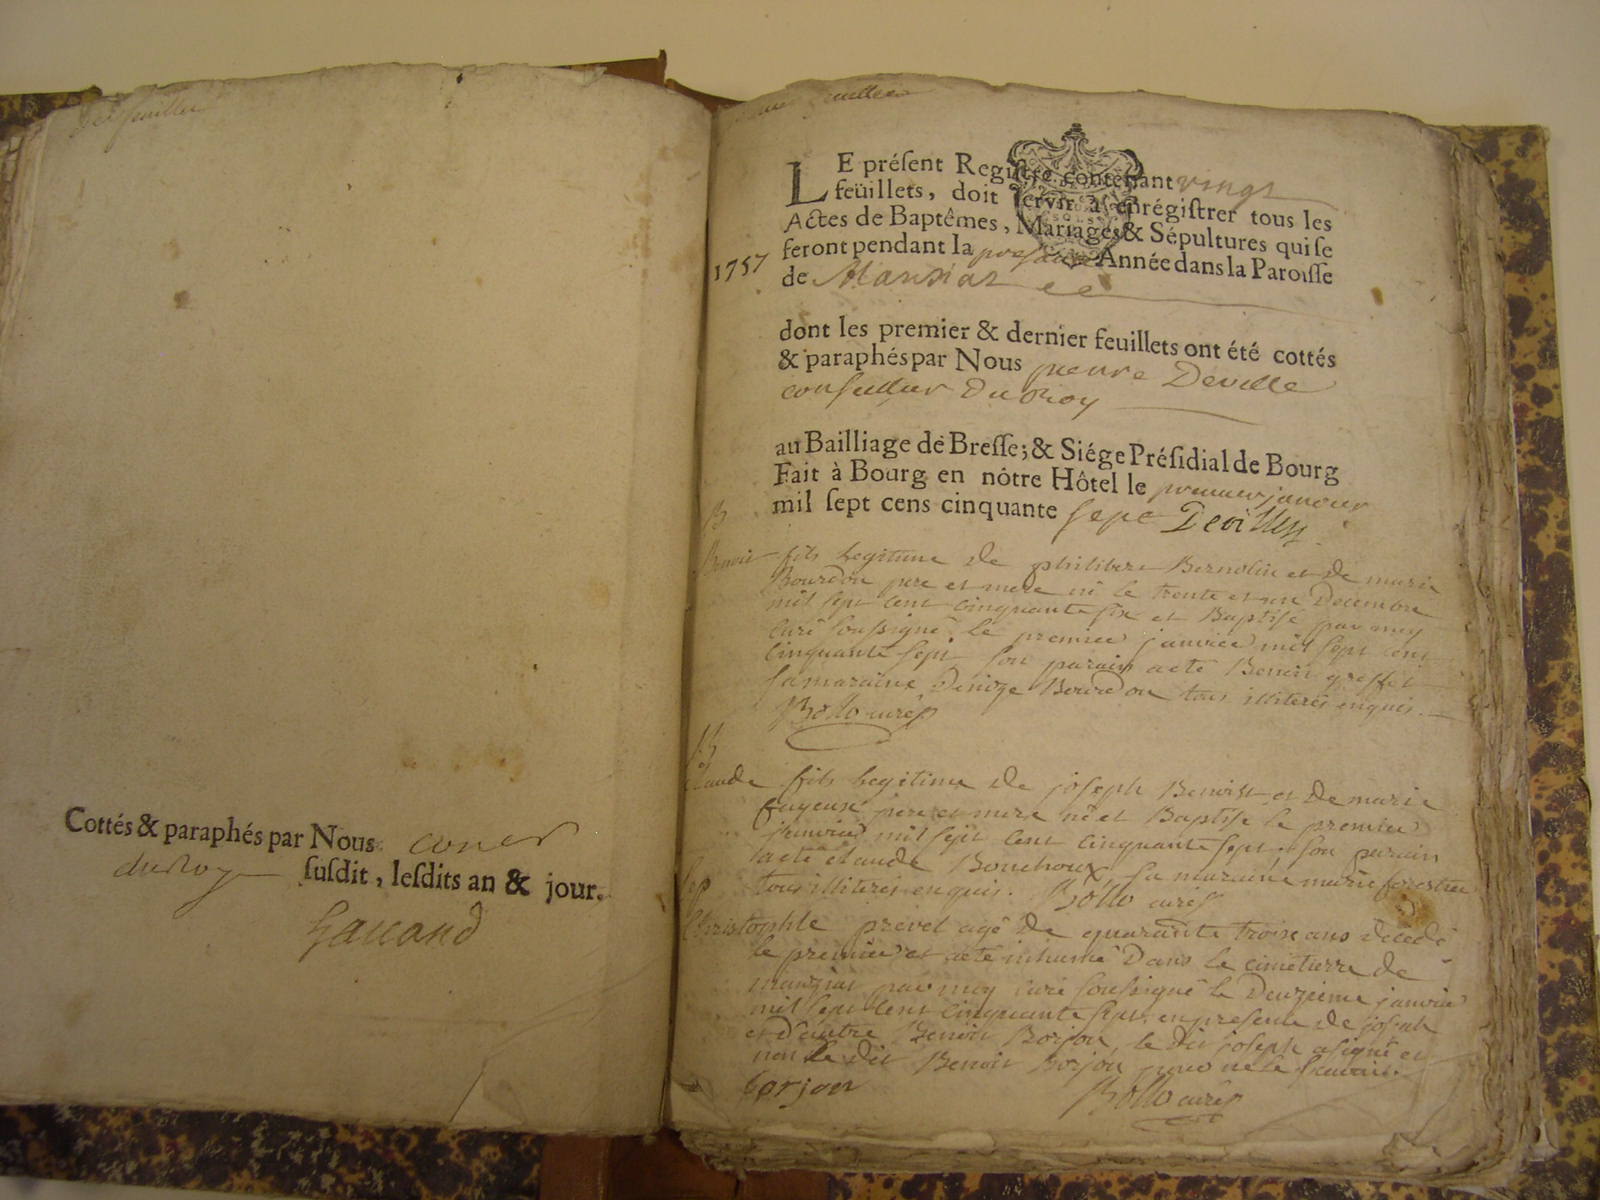 feuillet
Cottés & paraphés par Nous
du Roy susdit, lesdits an & jour.
feuillet
LE présent Registre contenant vingt
feüillets, doit servir à enrégistrer tous les
Actes de Baptêmes, Mariages & Sépultures qui se
1757 feront pendant la presente Année dans la Paroisse
de Marsiat
dont les premier & dernier feuillets ont été cottés
& paraphés par Nous pierre Deville
conseiller Du Roy
au Bailliage de Bresse; & Siége Présidial de Bourg
Fait à Bourg en nôtre Hôtel le premier janvier
mil sept cens cinquante sept Deville
B
Benoit fils legitime de philibert Bernolin et de marie
Bourdon pere et mere né le trente et un Decembre
mil sept cent cinquante six et Baptise par moy
curé soussigné le premier janvier mil sept cent
cinquante sept son parain a eté Benoit greffet
sa maraine Denize Bourdon tous illiterés enquis.
Bollo curé
B
Claude fils legitime de joseph Benoist et de marie
fuyeuse pere et mere né et Baptise le premier
janvier mil sept cent cinquante sept, son parain
a eté claude Bouchoux sa maraine marie forestier
tous illiterés enquis. Bollo curé
Sep
Christophle prevel agé de quarante trois ans decedé
le premier et a eté inhumé Dans le cimetierre de
marziat par moy curé soussigné le Deuzieme janvier
mil sept cent cinquante sept en presence de joseph
et D'autre Benoit Borjon, le dit joseph a signé et
non le dit Benoit Borjon pour ne le scavoir.
borjon Bollo curé